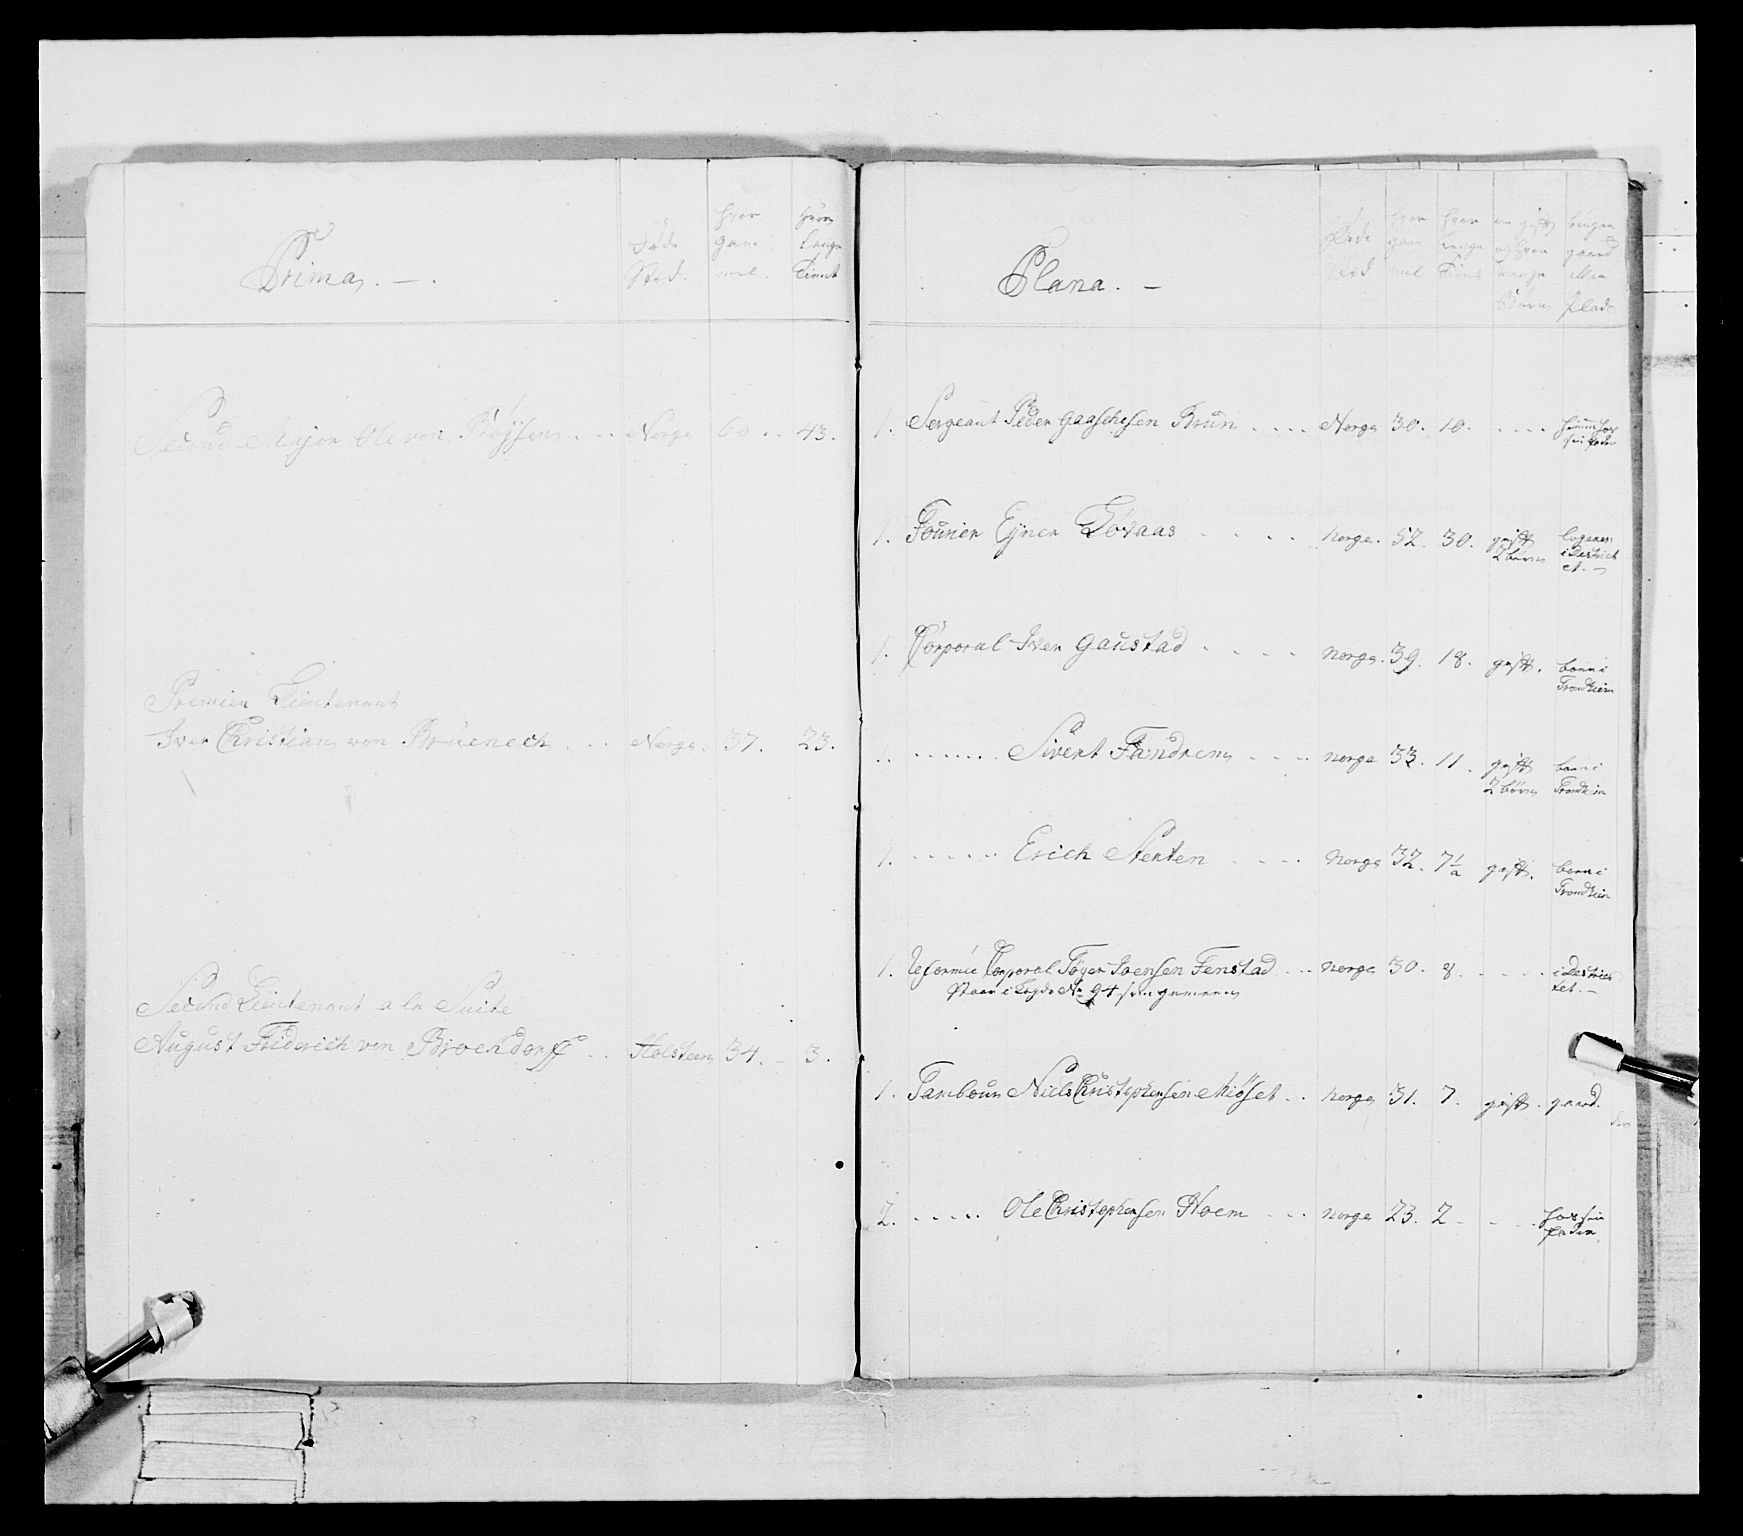 Prima. —.
Føde Sted.
hvor gam mel.
hvor lenge tient
Secund Major Ole von Røyssen . . . Norge 60 . . 43.
Premier Lieutenant
Iver Christian von Bruenech . . . Norge. 37. 23.
Second Lieutenant a la Suite
August Friderich von Brochdorff . . Holsteen 34. – 3.
Plana. —
Føde Sted
hvor gam mel
hvor lenge tient
om gift og hvor mange Børn
gaard eller Plads
1. Sergeant Peder Gaaschesen Brun . . . . Norge 30. 10. . . . . hiemme hos sin fader
1. Fourier Eÿner Løvaas . . . . norge. 52. 30. gift 2 børn logerer i Destrict et. –
1. Corporal Iver Gaustad . . . . norge. 39. 18. gift. boer i Trondhiem
1. . . . . . . Sivert Fandrem . . . . norge 33. 11. gift 2 børn boer i Trondhiem
1. . . . . . . Erich Stenten . . . . Norge 32. 7½ gift. boer i Trondhiem
1. Reformée Corporal Tøger Joensen Fenstad . . . norge 30. 8. . . . . . i Destric tet. –
Staar i Lægds No 94 som gemeen
1. Tambour Niels Christophersen Miøset . . norge 31. 7. gift. gaard.
2. . . . . . Ole Christophersen Hoem . . . norge 23. 2 - - . . hos sin fader.